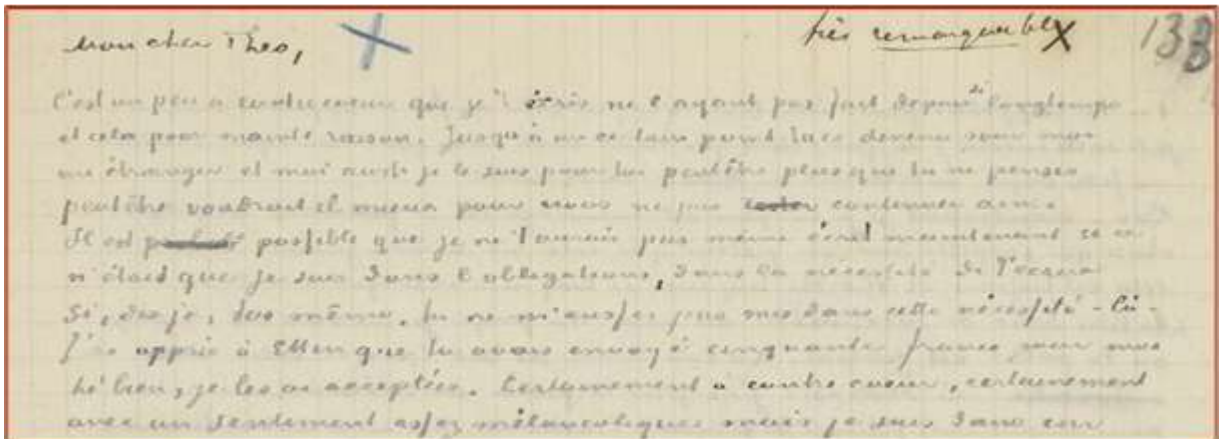 Mon cher Theo,
très remarquable X
133
C'est un peu à contrecoeur que je t'écris ne l'ayant pas fait depuis si longtemps
et cela pour mainte raison. Jusqu'à un certain point tu es devenu pour moi
un étranger et moi aussi je le suis pour toi peutêtre plus que tu ne penses
peutêtre vaudrait il mieux pour nous ne pas continuer ainsi
Il est possible que je ne t'aurais pas même écrit maintenant si ce
n'était que je suis dans l'obligation, dans la nécessité de t'écrire
Si, dis je, toi même, tu ne m'eusses pas mis dans cette nécessité-là-
J'ai appris à Etten que tu avais envoyé cinquante francs pour moi
hé bien, je les ai acceptés. Certainement à contre coeur, certainement
avec un sentiment assez mélancolique mais je suis dans